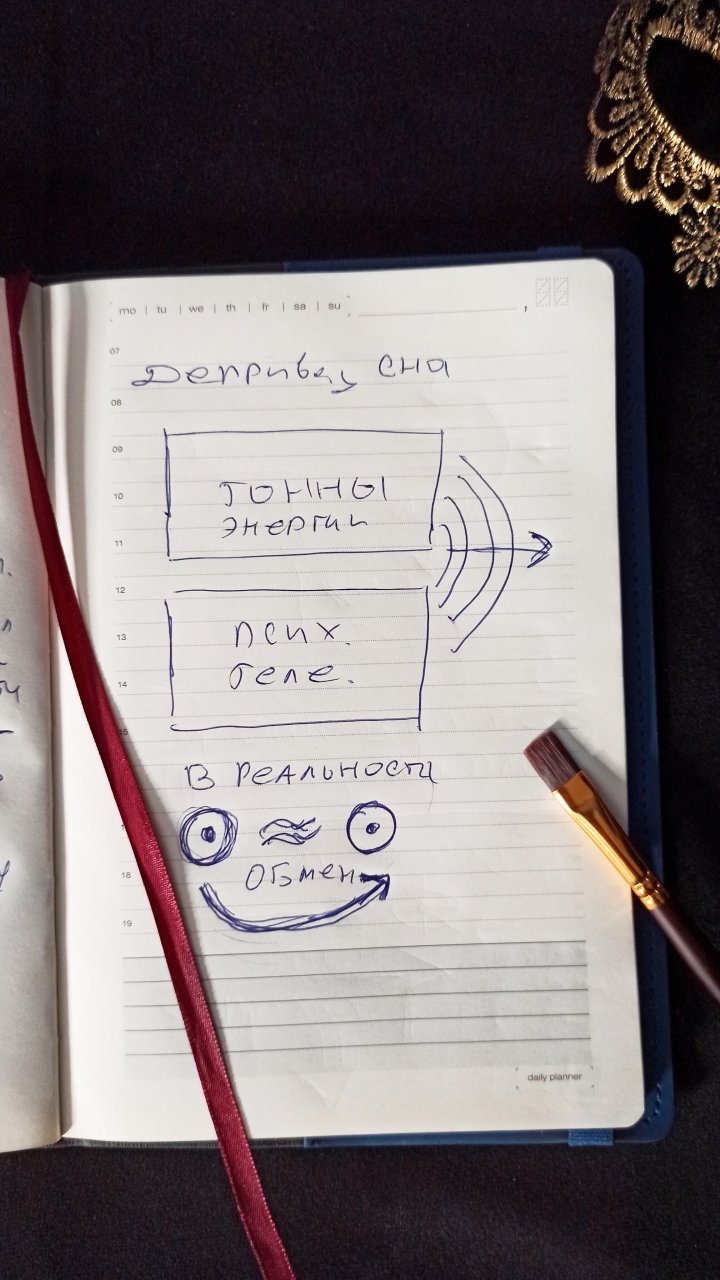 mo | tu | we | th | fr | sa | su ,
07
Деприва, сна
08
09
тонны
10
энергии
11
12
псих.
13
теле.
14
15
в реальности
Обмен
18
19
daily planner